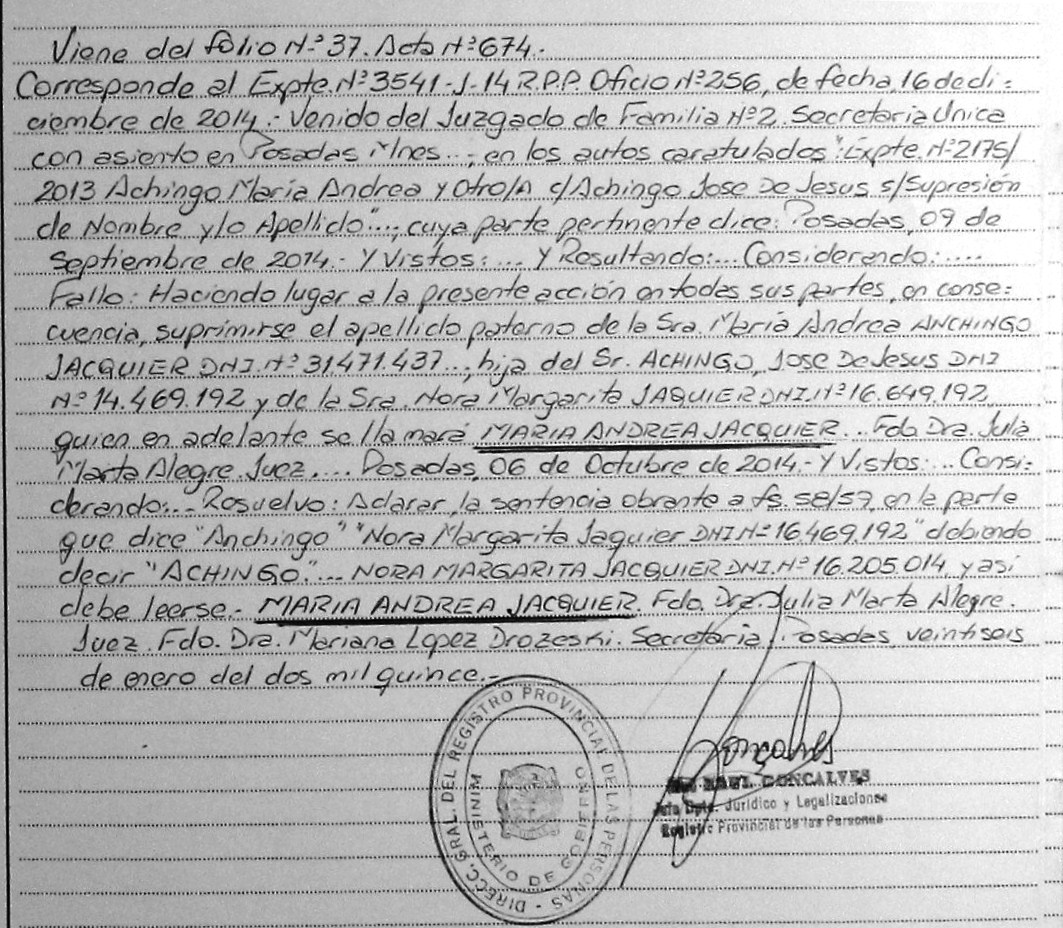 Viene del folio Nº 37. Acta Nº 674.-
Corresponde al Expte. Nº 3541-J-14 R.P.P. Oficio Nº 256, de fecha 16 de di=
ciembre de 2014.- Venido del Juzgado de Familia Nº 2 Secretaria Unica
con asiento en Posadas Mnes..., en los autos caratulados "Expte. Nº 2175/
2013 Achingo Maria Andrea y Otro/A c/Achingo Jose De Jesus s/Supresión
de Nombre y/o Apellido"..., cuya parte pertinente dice: Posadas, 09 de
Septiembre de 2014.- Y Vistos:.... Y Resultando:... Considerando:....
Fallo: Haciendo lugar a la presente acción en todas sus partes, en conse=
cuencia, suprimirse el apellido paterno de la Sra. Maria Andrea ANCHINGO
JACQUIER DNI. Nº 31.471.437..., hija del Sr. ACHINGO, Jose De Jesus DNI
Nº 14.469.192 y de la Sra. Nora Margarita JAQUIER DNI. Nº 16.649.192,
quien en adelante se llamará MARIA ANDREA JACQUIER... Fdo. Dra. Julia
Marta Alegre. Juez.... Posadas, 06 de Octubre de 2014.- Y Vistos:... Consi=
derando:... Resuelvo: Aclarar, la sentencia obrante a fs. 58/59, en la parte
que dice "Anchingo" "Nora Margarita Jaquier DNI Nº 16.469.192" debiendo
decir "ACHINGO."... NORA MARGARITA JACQUIER DNI. Nº 16.205.014 y así
debe leerse.- MARIA ANDREA JACQUIER. Fdo. Dra. Julia Marta Alegre.
Juez. Fdo. Dra. Mariana Lopez Drozeski. Secretaria. Posadas, veintiseis
de enero del dos mil quince.-
DIRECC. GRAL. DEL REGISTRO PROVINCIAL DE LAS PERSONAS -
MINISTERIO DE GOBIERNO
Gonçalves
RAUL GONCALVES
Jefe Dpto. Jurídico y Legalizaciones
Registro Provincial de las Personas